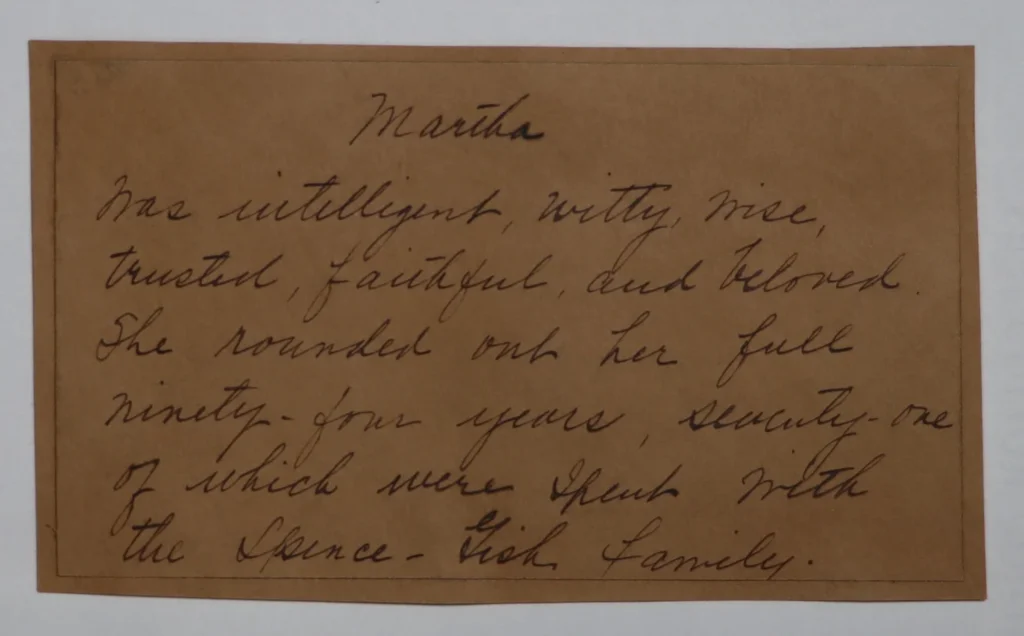 Martha
Was intelligent, witty, wise,
trusted, faithful, and beloved.
She rounded out her full
ninety-four years, seventy-one
of which were spent with
the Spence-Gish family.